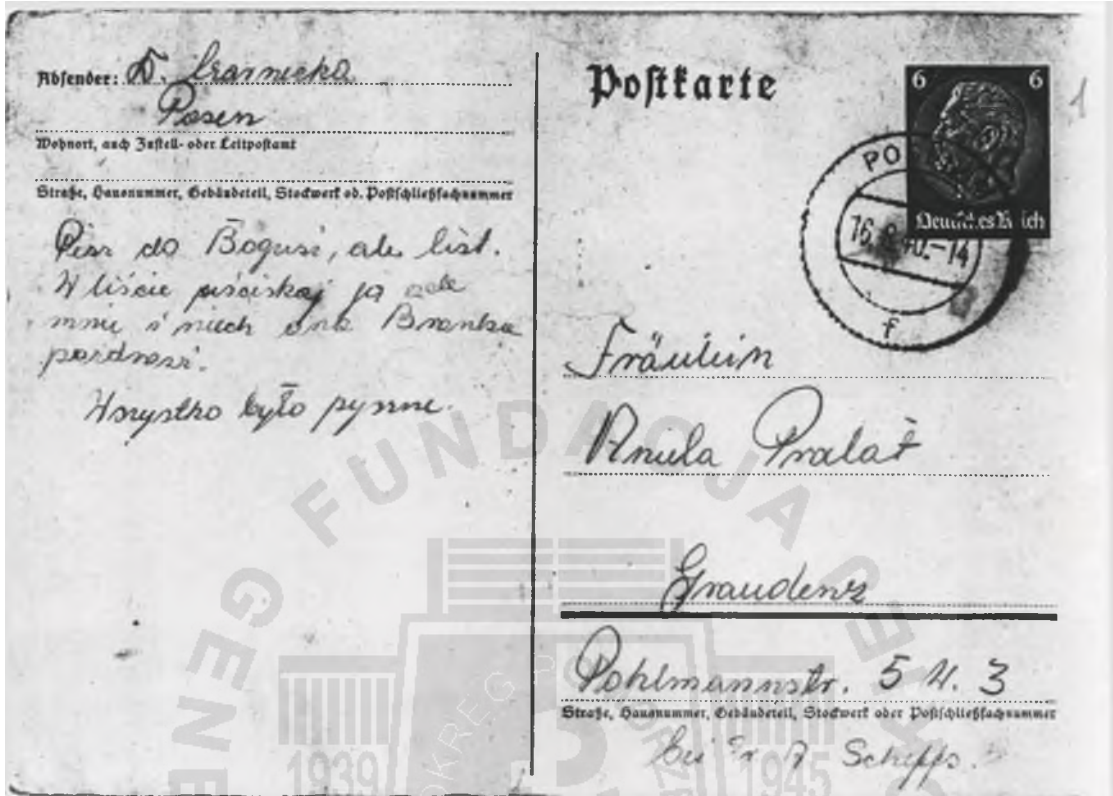 Absender: D. Czarnecka
Posen
Wohnort, auch Zustell- oder Leitpostamt
Straße, Hausnummer, Gebäudeteil, Stockwerk od. Postschließfachnummer
Pisz do Bogusi, ale list.
W liście uściskaj ją ode
mnie i niech ona Bronka
pozdrowi.
Wszystko było pyszne.
Postkarte
6 6
Deutsches Reich
PO
16. 8. 40.-14
f
1
Fräulein
Anula Pralat
Graudenz
Pohlmannstr. 5 II. 3
Straße, Hausnummer, Gebäudeteil, Stockwerk oder Postschließfachnummer
bei Schipps.
FUNDACJA GENE
OKRĘG PO
1939 1945